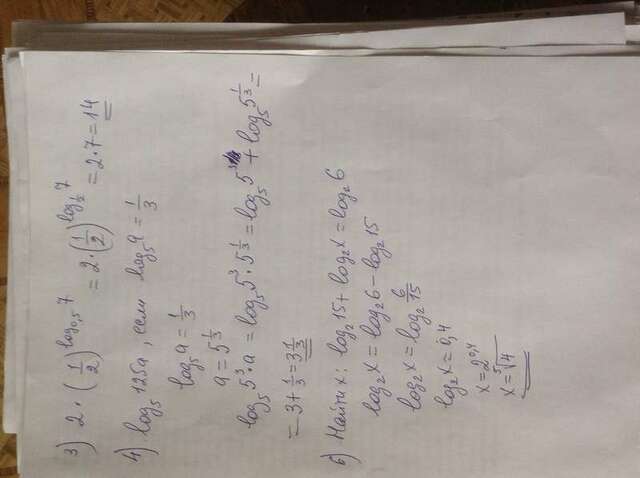 3) 2 · (1/2)^log₀,₅ 7 = 2·(1/2)^log_1/2 7 = 2·7 = 14
4) log₅ 125a, если log₅ a = 1/3
log₅ a = 1/3
a = 5^1/3
log₅ 5³·a = log₅ 5³·5^1/3 = log₅ 5³ + log₅ 5^1/3 =
= 3 + 1/3 = 3 1/3
6) Найти x: log₂ 15 + log₂ x = log₂ 6
log₂ x = log₂ 6 – log₂ 15
log₂ x = log₂ 6/15
log₂ x = 0,4
x = 2^0,4
x = ⁵√4